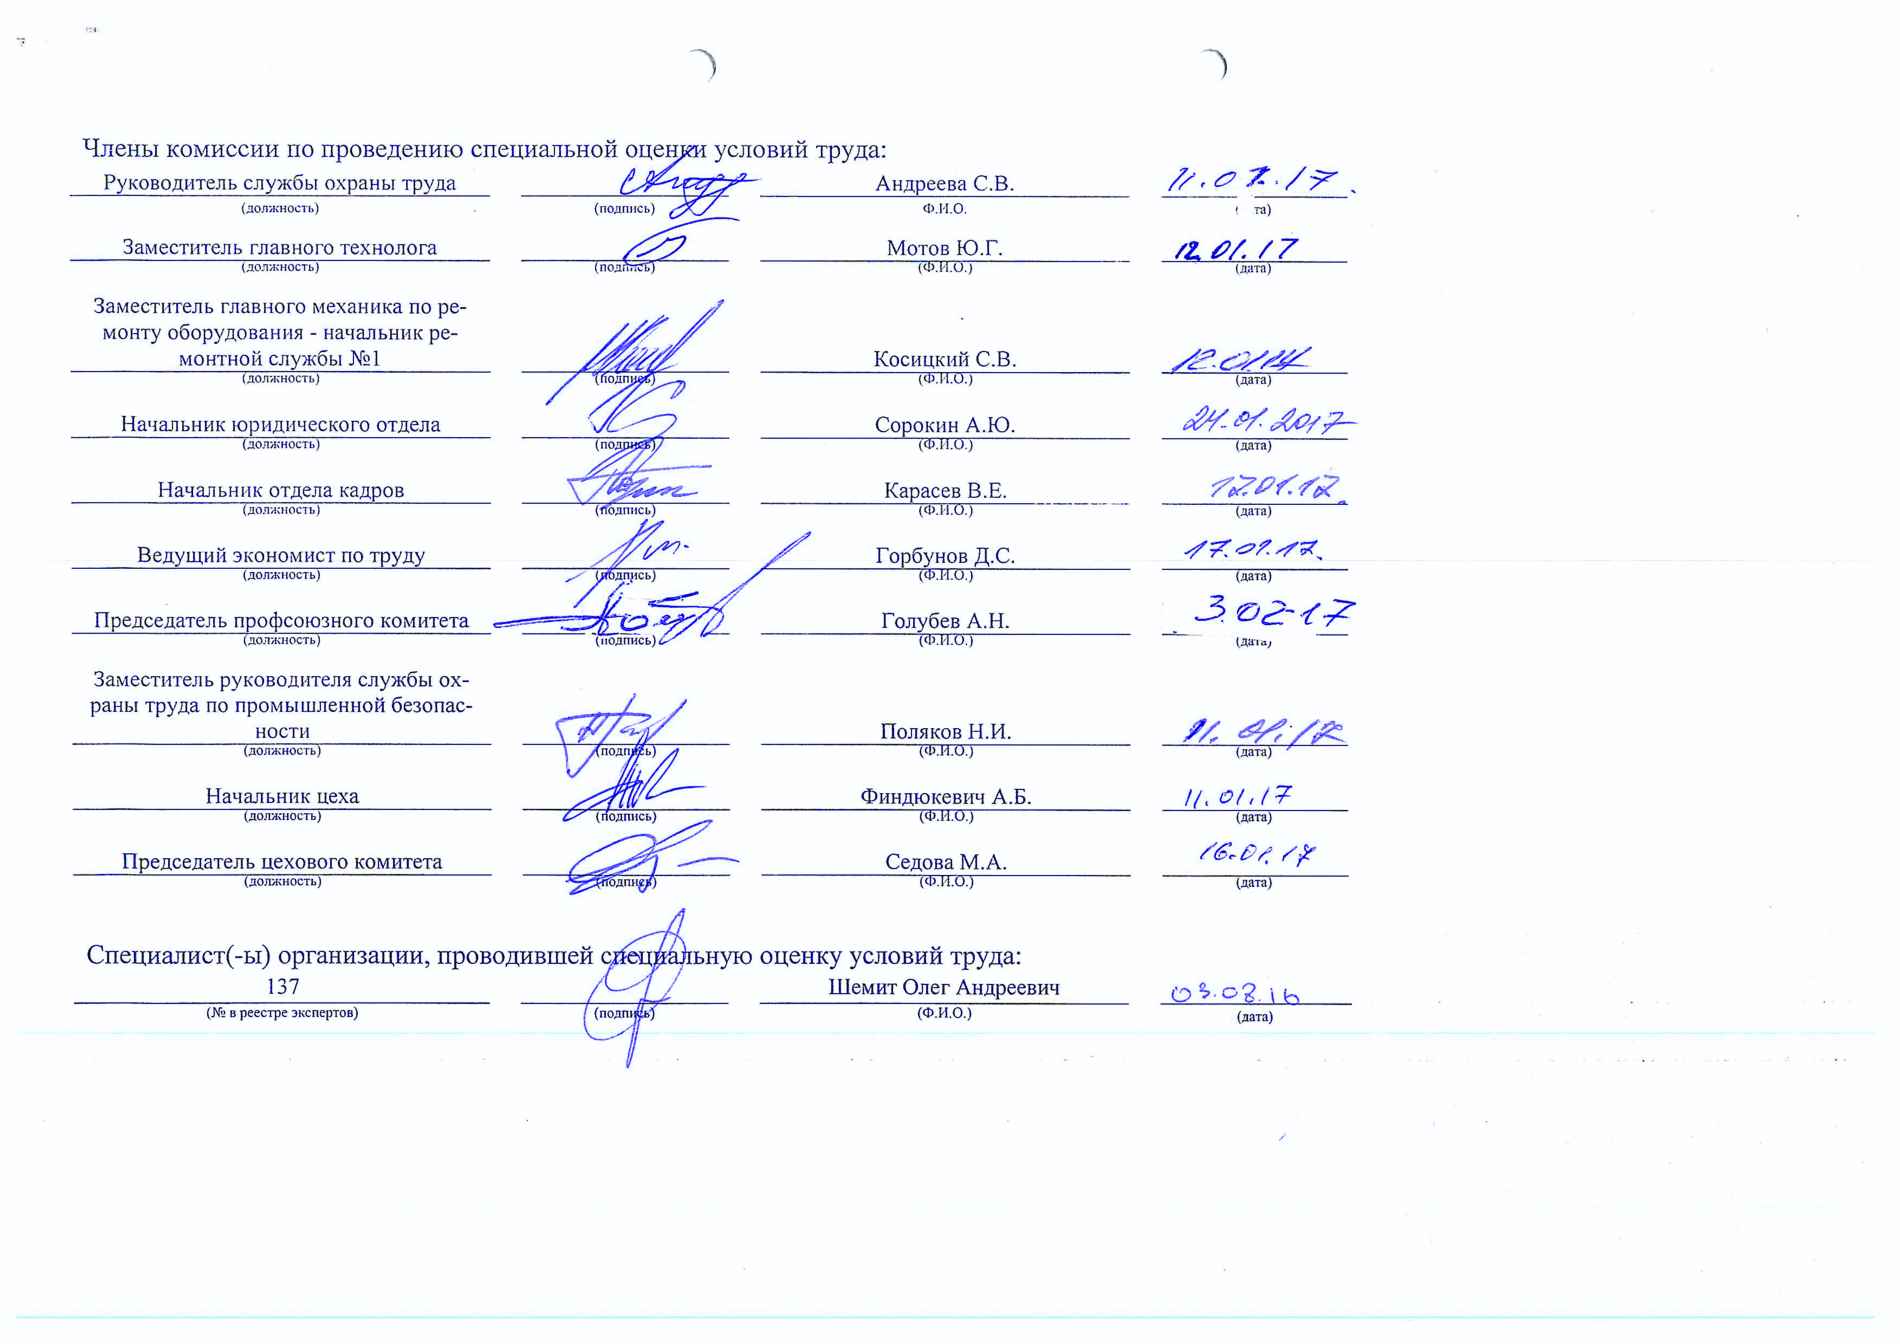 Члены комиссии по проведению специальной оценки условий труда:
Руководитель службы охраны труда Андреева С.В. 11.01.17.
(должность) (подпись) Ф.И.О. та)
Заместитель главного технолога Мотов Ю.Г. 12.01.17
(должность) (подпись) (Ф.И.О.) (дата)
Заместитель главного механика по ре-
монту оборудования - начальник ре-
монтной службы №1 Косицкий С.В. 12.01.17
(должность) (подпись) (Ф.И.О.) (дата)
Начальник юридического отдела Сорокин А.Ю. 24.01.2017
(должность) (подпись) (Ф.И.О.) (дата)
Начальник отдела кадров Карасев В.Е. 17.01.17.
(должность) (подпись) (Ф.И.О.) (дата)
Ведущий экономист по труду Горбунов Д.С. 17.01.17.
(должность) (подпись) (Ф.И.О.) (дата)
Председатель профсоюзного комитета Голубев А.Н. 3.02-17
(должность) (подпись) (Ф.И.О.) (дата)
Заместитель руководителя службы ох-
раны труда по промышленной безопас-
ности Поляков Н.И. 11.01.17
(должность) (подпись) (Ф.И.О.) (дата)
Начальник цеха Финдюкевич А.Б. 11.01.17
(должность) (подпись) (Ф.И.О.) (дата)
Председатель цехового комитета Седова М.А. 16.01.17
(должность) (подпись) (Ф.И.О.) (дата)
Специалист(-ы) организации, проводившей специальную оценку условий труда:
137 Шемит Олег Андреевич 03.08.16
(№ в реестре экспертов) (подпись) (Ф.И.О.) (дата)